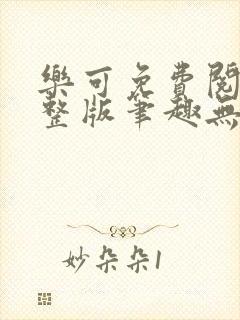 樂可免費閱
整版筆趣無
妙朵朵1